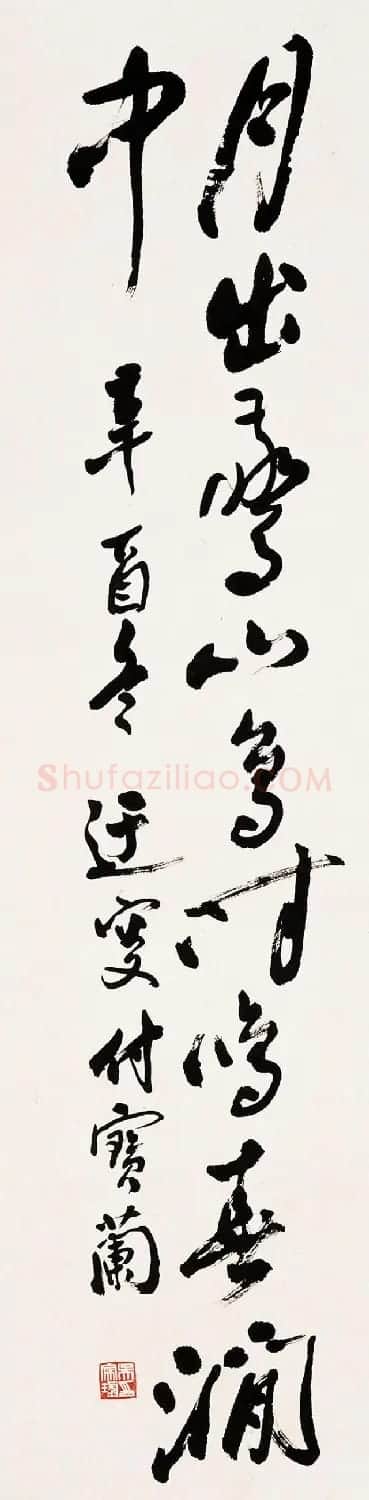 月出驚山鳥時鳴春澗
中 辛酉冬 迂叟付寶蘭
Shufaziliao.COM